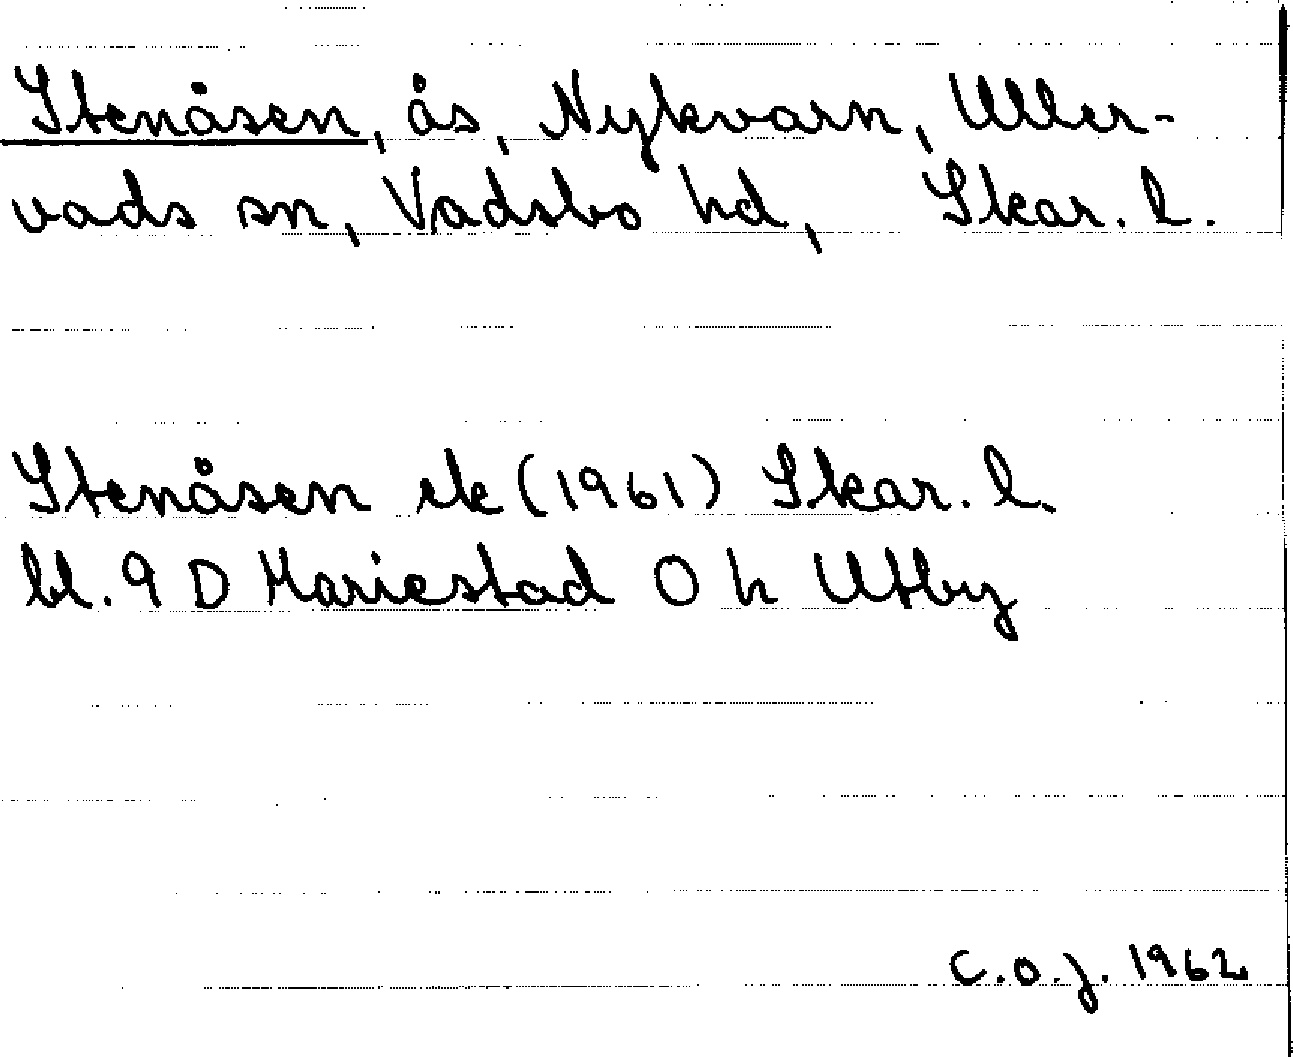 Stenåsen, ås, Nykvarn, Uller-
vads sn, Vadsbo hd, Skar. l.
Stenåsen ek (1961) Skar. l.
bl. 9 D Mariestad O h Utby
C.O.J. 1962